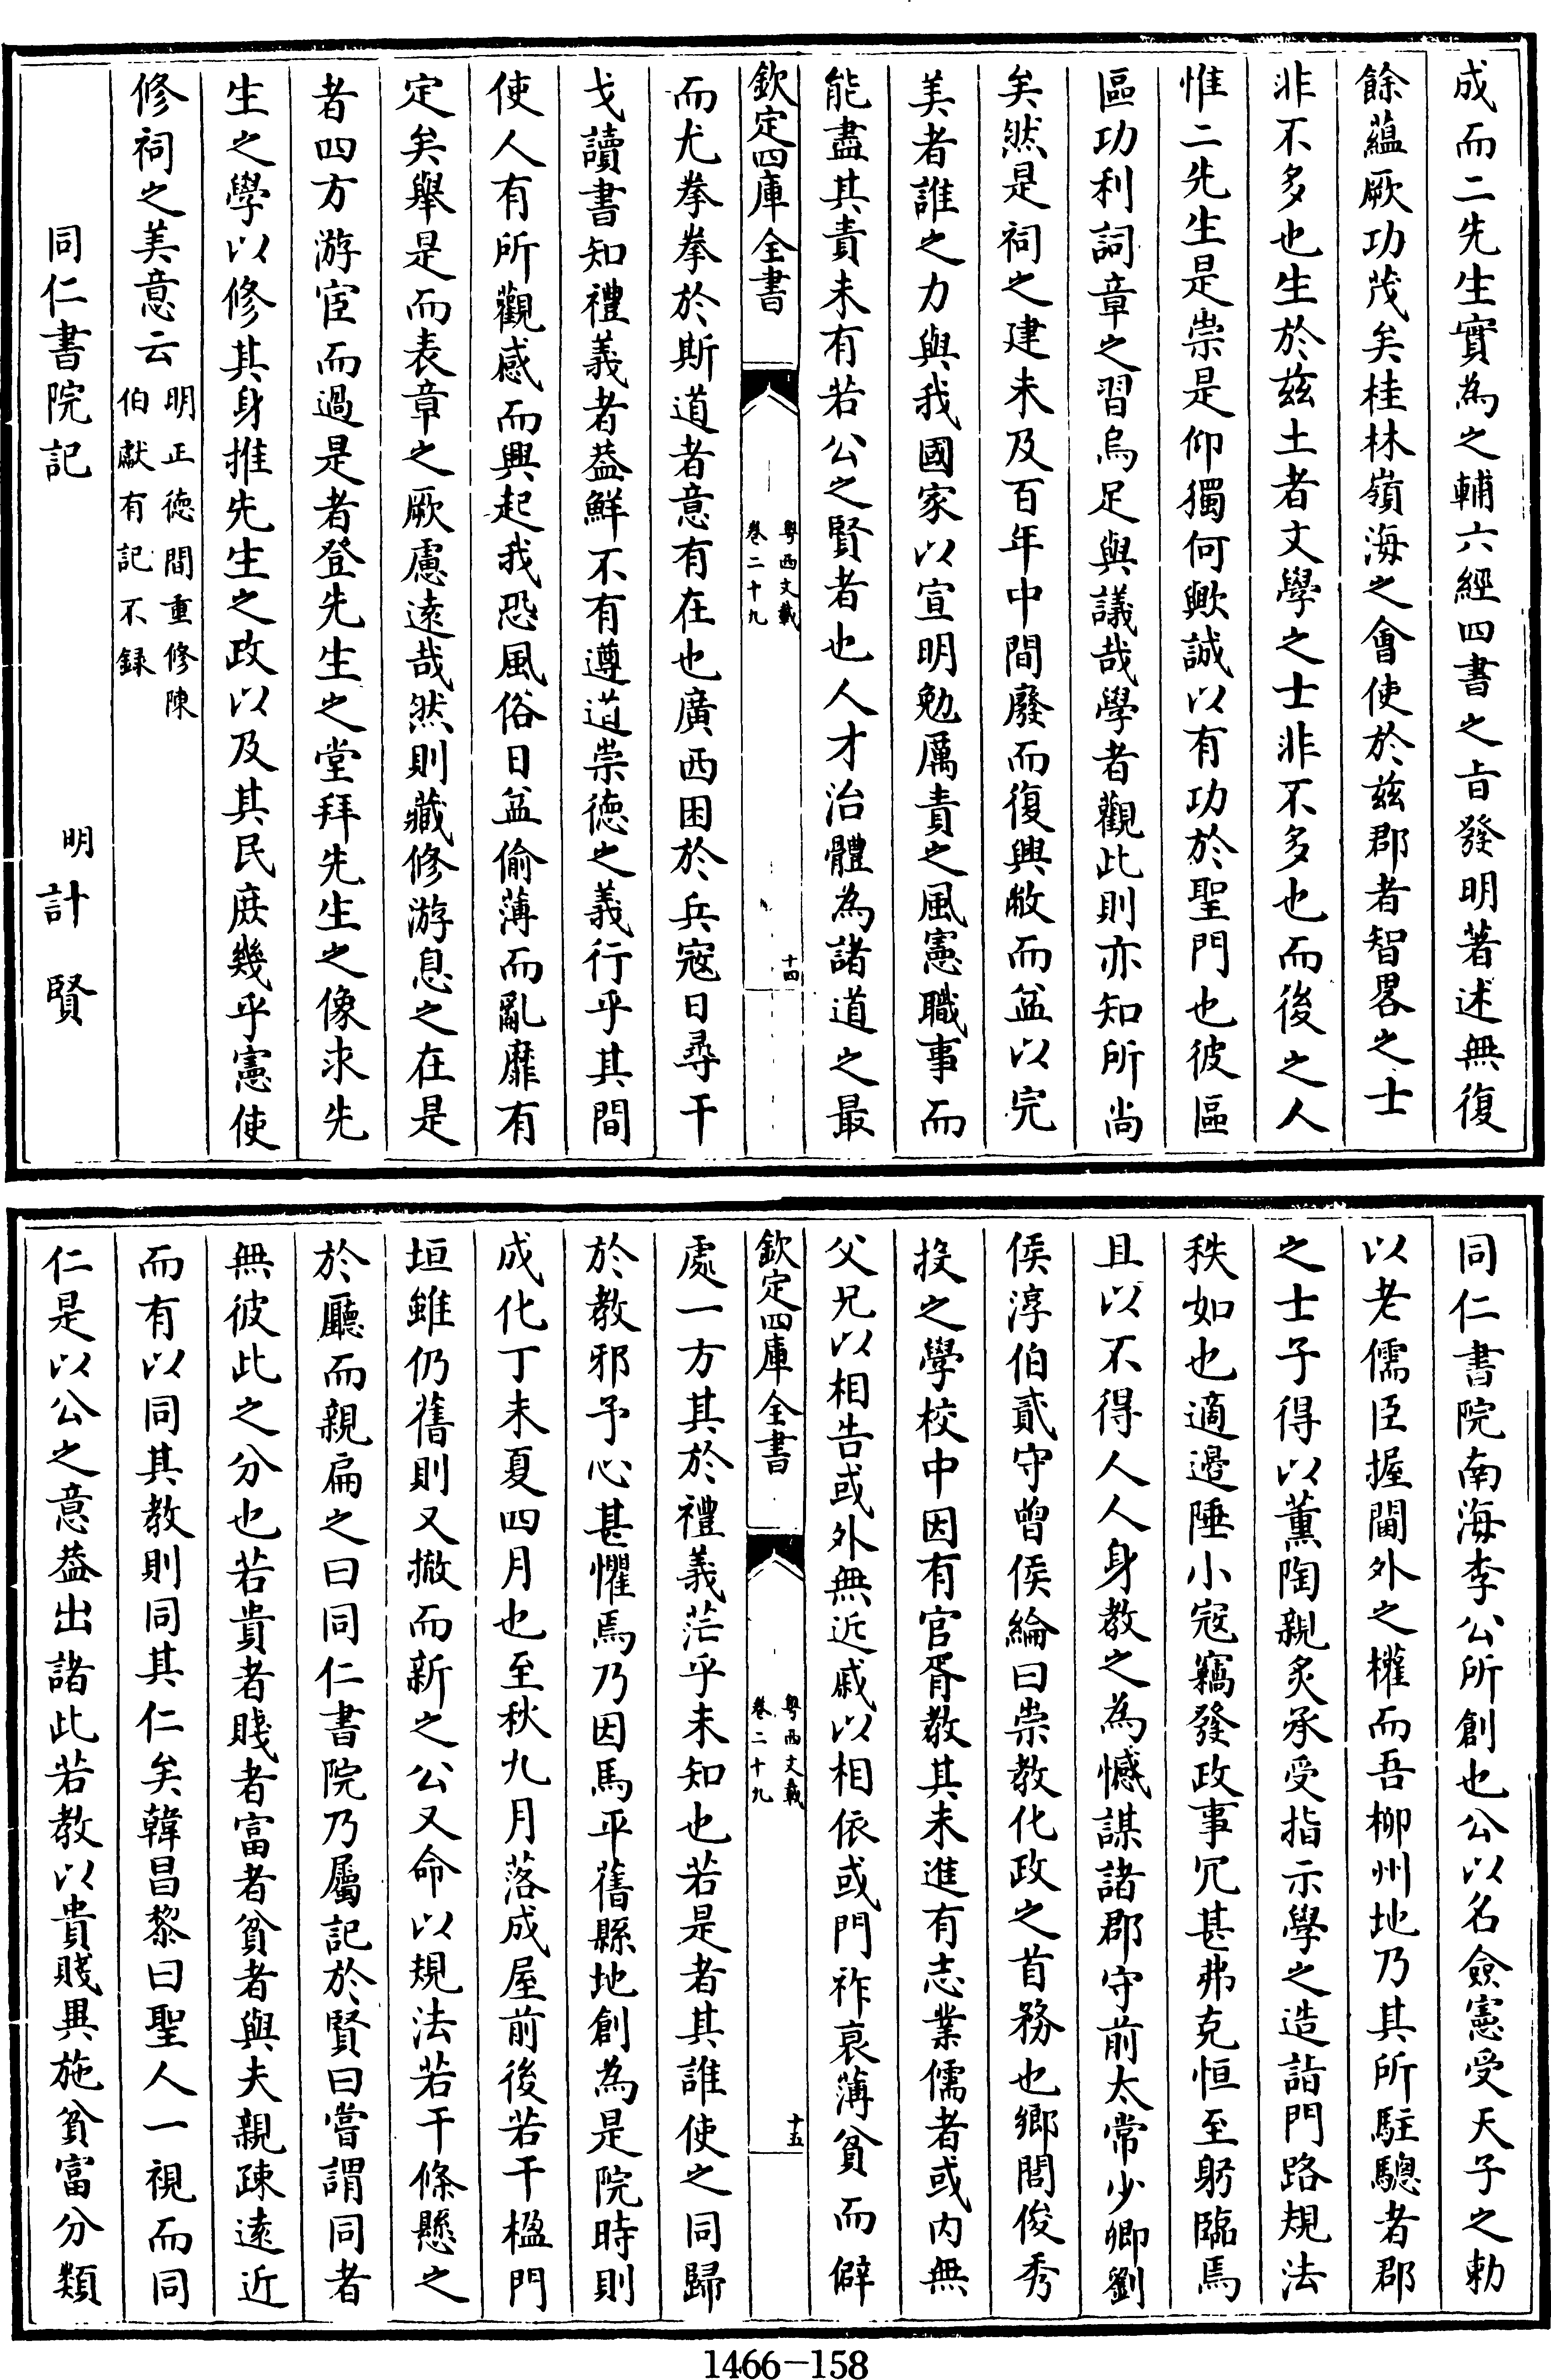 成而二先生實為之輔六經四書之旨發明著述無復
餘蘊厥功茂矣桂林嶺海之會使於茲郡者智畧之士
非不多也生於茲土者文學之士非不多也而後之人
惟二先生是崇是仰獨何歟誠以有功於聖門也彼區
區功利詞章之習烏足與議哉學者觀此則亦知所尚
矣然是祠之建未及百年中間廢而復興敝而益以完
美者誰之力與我國家以宣明勉厲責之風憲職事而
能盡其責未有若公之賢者也人才治體為諸道之最
欽定四庫全書
粤西文載
卷二十九
十四
而尤拳拳於斯道者意有在也廣西困於兵寇日尋干
戈讀書知禮義者葢鮮不有遵道崇德之義行乎其間
使人有所觀感而興起我恐風俗日益偷薄而亂靡有
定矣舉是而表章之厥慮遠哉然則藏修游息之在是
者四方游宦而過是者登先生之堂拜先生之像求先
生之學以修其身推先生之政以及其民庶幾乎憲使
修祠之美意云
明正德間重修陳
伯獻有記不録
同仁書院記
明計賢
同仁書院南海李公所創也公以名僉憲受天子之勅
以老儒臣握閫外之權而吾柳州地乃其所駐驄者郡
之士子得以薰陶親炙承受指示學之造詣門路規法
秩如也適邊陲小寇竊發政事冗甚弗克恒至躬臨焉
且以不得人人身教之為憾謀諸郡守前太常少卿劉
侯淳伯貳守曾侯綸曰崇教化政之首務也鄉閭俊秀
投之學校中因有官胥教其未進有志業儒者或内無
父兄以相告或外無近戚以相依或門祚衰薄貧而僻
欽定四庫全書
粤西文載
卷二十九
十五
處一方其於禮義茫乎未知也若是者其誰使之同歸
於教邪予心甚懼焉乃因馬平舊縣地創為是院時則
成化丁未夏四月也至秋九月落成屋前後若干楹門
垣雖仍舊則又撤而新之公又命以規法若干條懸之
於廳而親扁之曰同仁書院乃屬記於賢曰嘗謂同者
無彼此之分也若貴者賤者富者貧者與夫親疎遠近
而有以同其教則同其仁矣韓昌黎曰聖人一視而同
仁是以公之意葢出諸此若教以貴賤異施貧富分類
1466-158